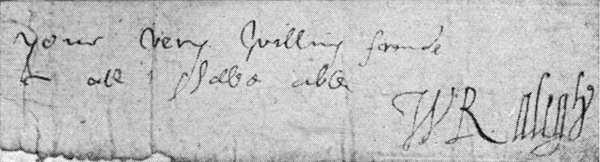 your very willing frinde
in all I shalbe able
W Ralegh